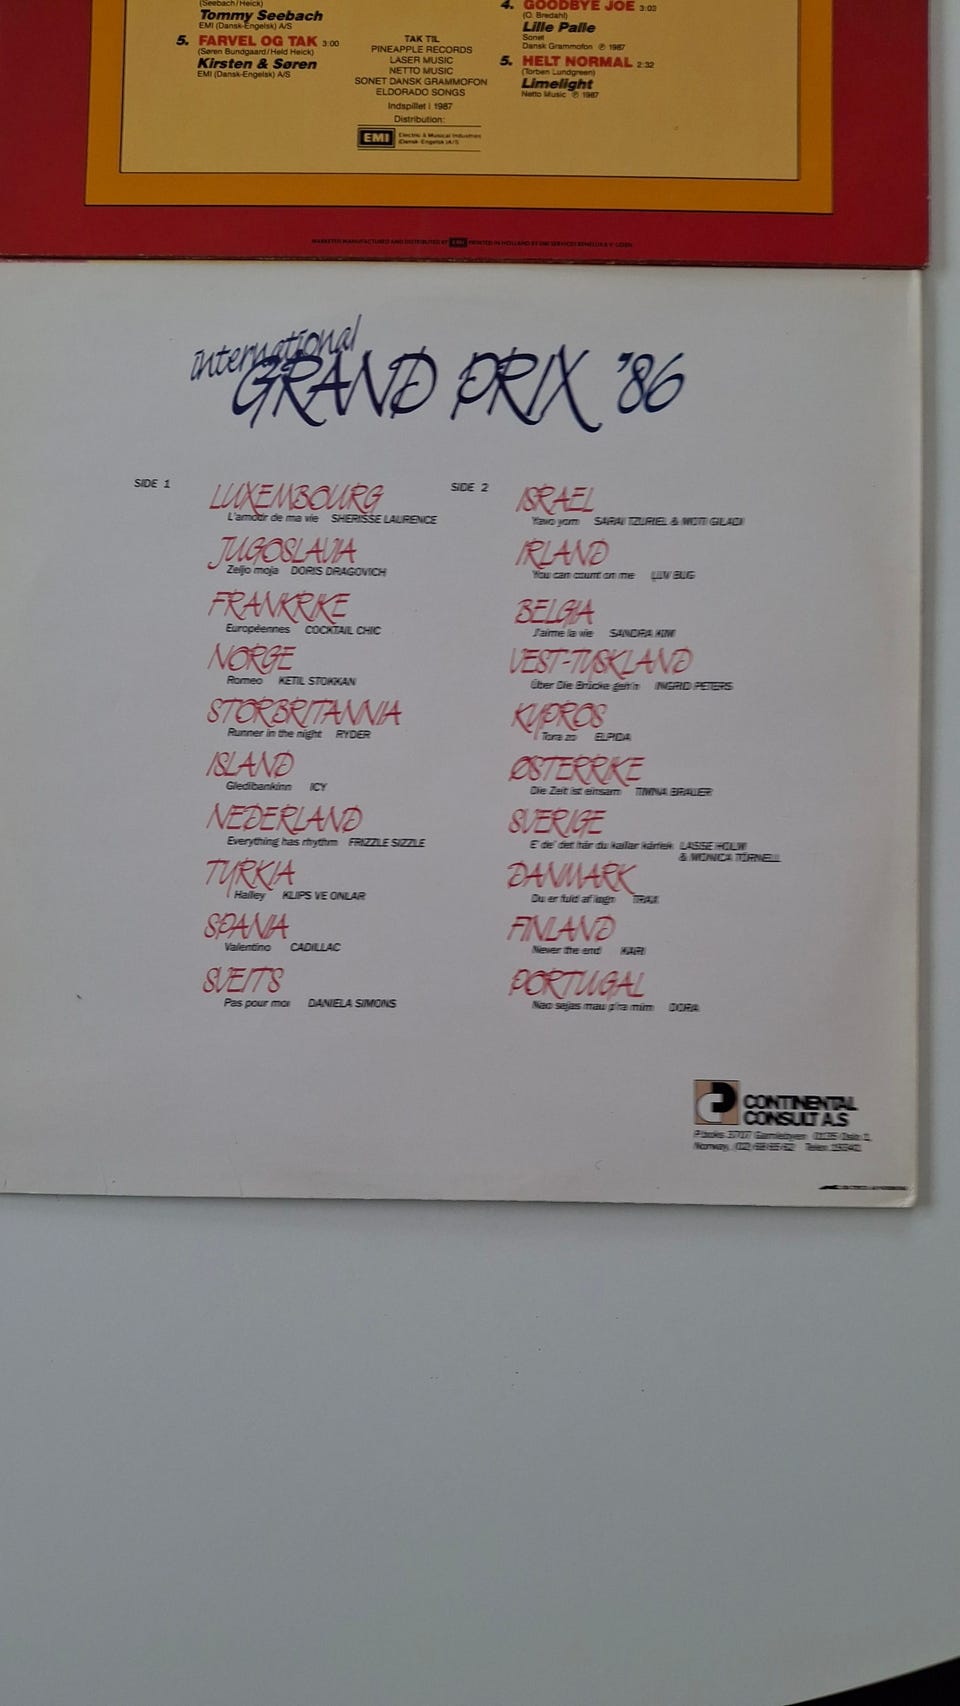 (Seebach/Heick)
Tommy Seebach
EMI (Dansk-Engelsk) A/S
5. FARVEL OG TAK 3:00
(Søren Bundgaard/Keld Heick)
Kirsten & Søren
EMI (Dansk-Engelsk) A/S
TAK TIL
PINEAPPLE RECORDS
LASER MUSIC
NETTO MUSIC
SONET DANSK GRAMMOFON
ELDORADO SONGS
Indspillet i 1987
Distribution:
EMI Electric & Musical Industries
(Dansk-Engelsk) A/S
4. GOODBYE JOE 3:03
(O. Bredahl)
Lille Palle
Sonet
Dansk Grammofon ℗ 1987
5. HELT NORMAL 2:32
(Torben Lundgreen)
Limelight
Netto Music ℗ 1987
MARKETED MANUFACTURED AND DISTRIBUTED BY EMI PRINTED IN HOLLAND BY EMI SERVICES BENELUX B.V. UDEN
international
GRAND PRIX '86
SIDE 1
LUXEMBOURG
L'amour de ma vie SHERISSE LAURENCE
JUGOSLAVIA
Zeljo moja DORIS DRAGOVICH
FRANKRIKE
Européennes COCKTAIL CHIC
NORGE
Romeo KETIL STOKKAN
STORBRITANNIA
Runner in the night RYDER
ISLAND
Gledibankinn ICY
NEDERLAND
Everything has rhythm FRIZZLE SIZZLE
TYRKIA
Halley KLIPS VE ONLAR
SPANIA
Valentino CADILLAC
SVEITS
Pas pour moi DANIELA SIMONS
SIDE 2
ISRAEL
Yavo yom SARAI TZURIEL & MOTI GILADI
IRLAND
You can count on me LUV BUG
BELGIA
J'aime la vie SANDRA KIM
VEST-TYSKLAND
Über Die Brücke geh'n INGRID PETERS
KYPROS
Tora zo ELPIDA
ØSTERRIKE
Die Zeit ist einsam TIMNA BRAUER
SVERIGE
E' de' det här du kallar kärlek LASSE HOLM
& MONICA TÖRNELL
DANMARK
Du er fuld af løgn TRAX
FINLAND
Never the end KARI
PORTUGAL
Nao sejas mau p'ra mim DORA
CONTINENTAL
CONSULT A.S
P.boks 3707 Gamlebyen 0135 Oslo 1,
Norway,